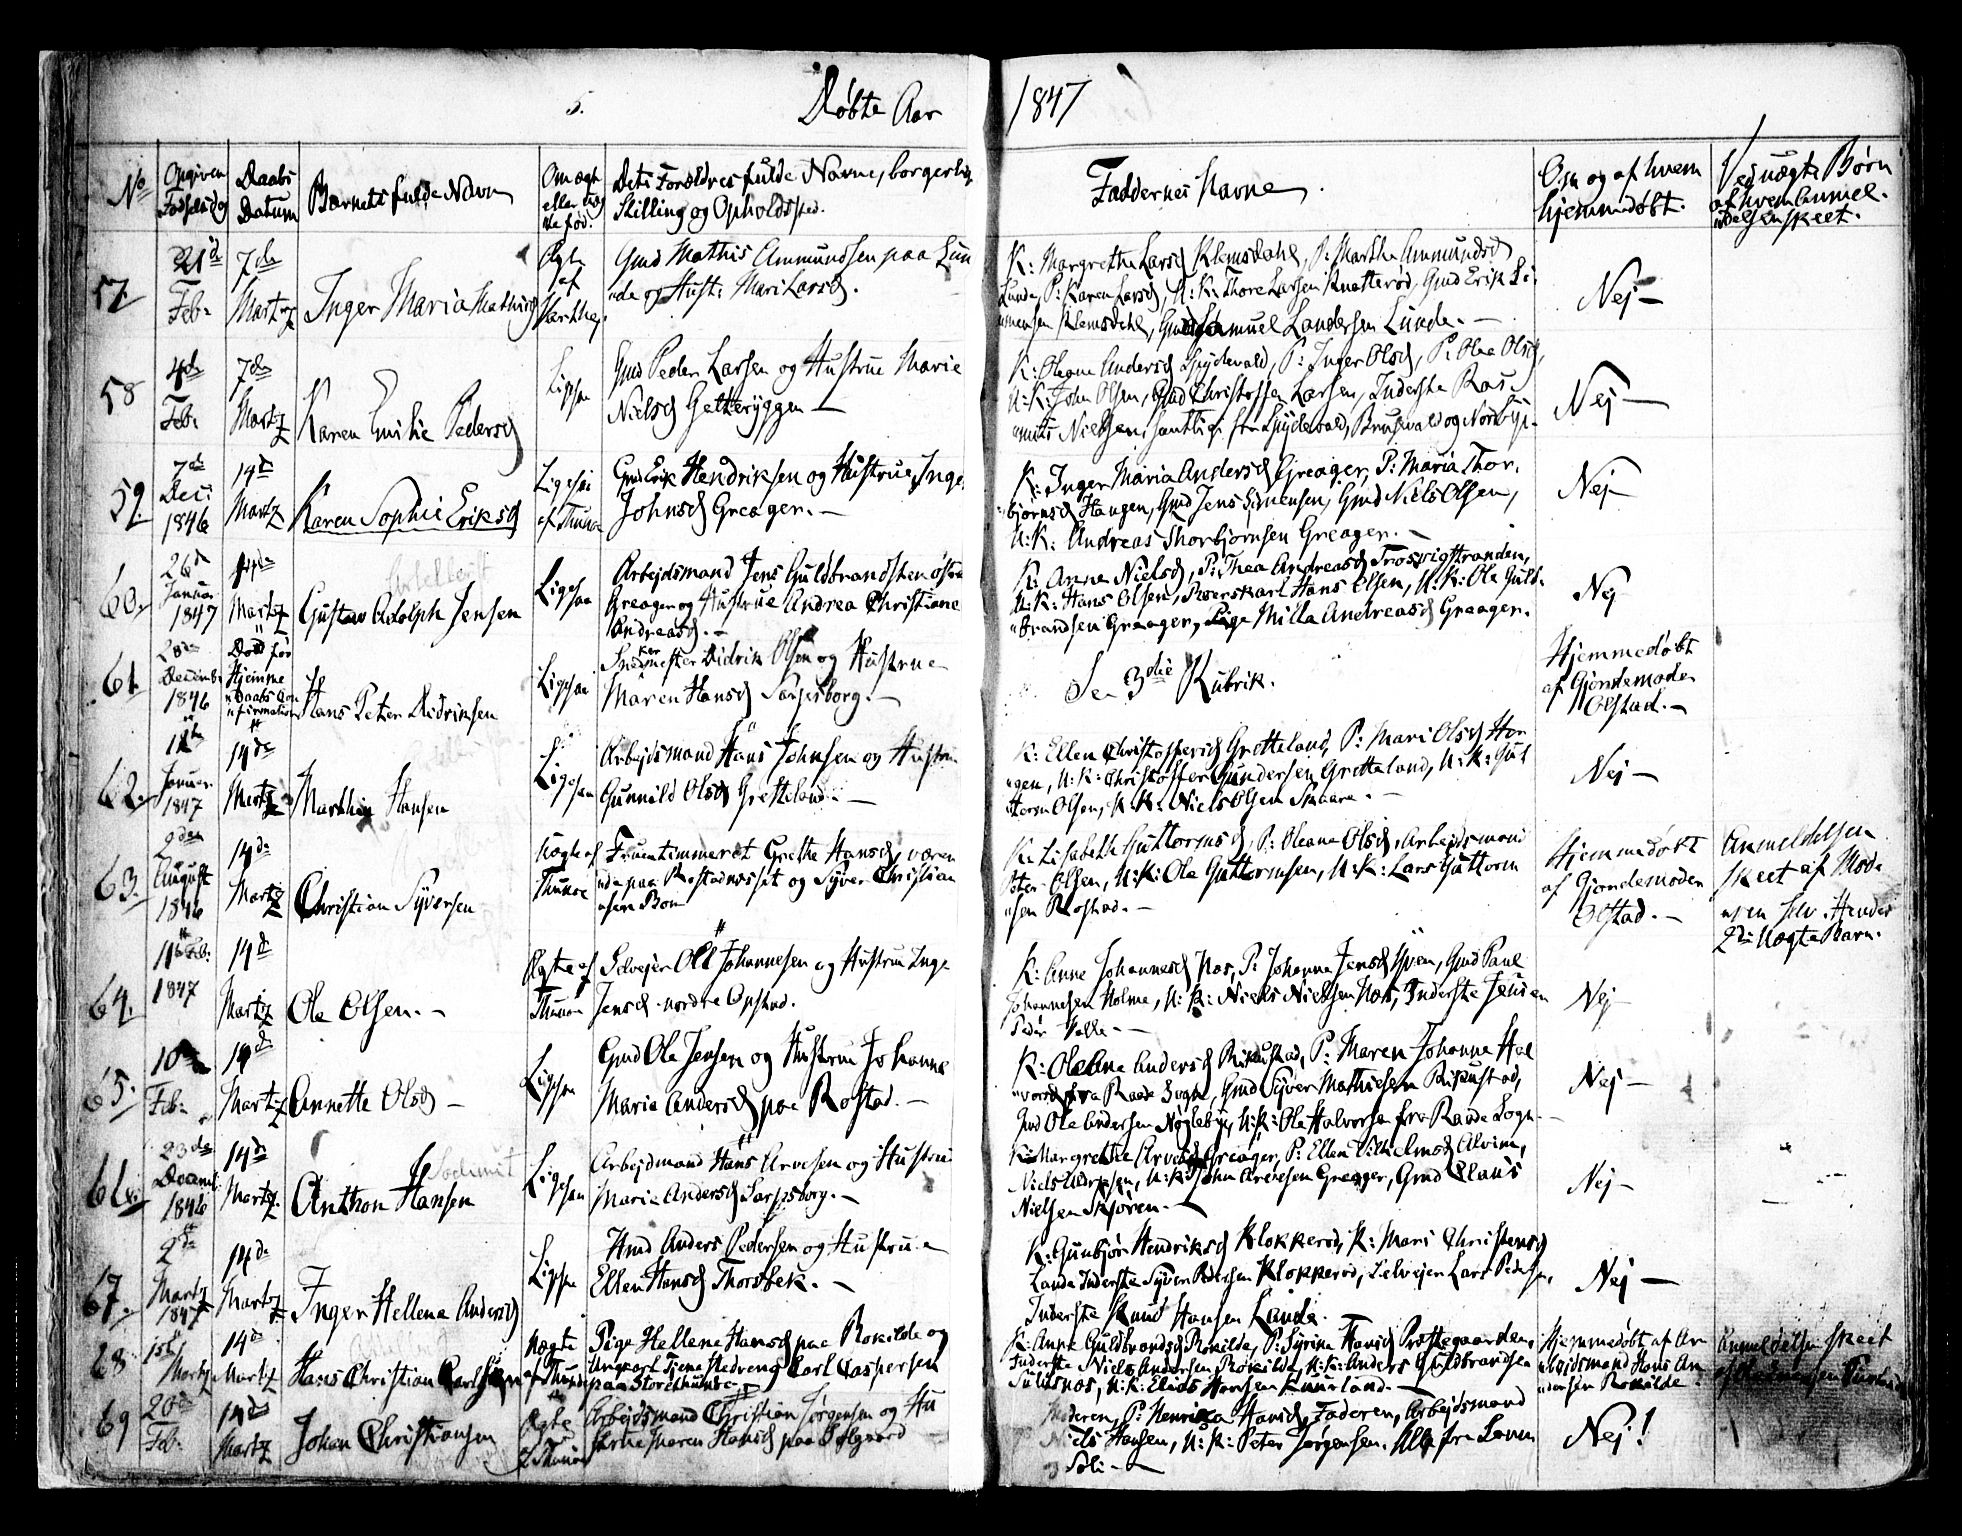 5.
Døbte Aar 1847
No
Opgiven Fødselsdag
Daabs Datum
Barnets fulde Navn
Om ægte eller uægte fød.
Dets Forældres fulde Navne, borgerlig
Stilling og Opholdssted.
Faddernes Navne.
Om og af hvem
hjemmedøbt.
Ved uægte Børn
af hvem Anmel-
delsen skeet.
57.
21de Feb:
7de Martz
Inger Maria Mathisd
Ægte af
Gmd Mathis Ammundsen paa Lun
de og Hust: Mari Larsd.
K: Margrethe Larsd Klemsdahl, P: Marthe Ammundsd
Lunde, P: Karen Larsd, U: K: Thore Larsen Knatterød, Gmd Erik Si-
mensen Klemsdahl, Gmd Samuel Landersen Lunde. —
Nej —
58
4de Feb:
7de Martz
Karen Emilie Pedersd
Ligesaa
Gmd Peder Larsen og Hustrue Marie
Nielsd Getterÿggen —
K: Oleane Andersd Spydevold, P: Inger Olsd, P: Olea Olsd,
U: K: John Olsen, Gmd Christoffer Larsen, Inderste Ras-
mus Nielsen, samtlige fra Spydevold, Brusevold og Nordby.
Nej —
59.
7de Dec: 1846
14de Martz
Karen Sophie Eriksd
Ligesaa af Thunø
Gmd Erik Hendriksen og Hustrue Inge
Johnsd Greager. —
K: Inger Maria Andersd Greager, P: Maria Thor-
bjørnsd Haugen, Gmd Jens Simensen, Gmd Niels Olsen,
U: K: Andreas Thorbjørnsen Greager. —
Nej
60.
26de Januar 1847
14de Martz
Gustav Adolph Jensen
Ligesaa
Arbejdsmand Jens Guldbrandsen østre
Greager og Hustrue Andrea Christiane
Andreasd. —
K: Anne Nielsd, P: Thea Andreasd Trosvigstranden,
U: K: Hans Olsen, Hans Olsen, U: K: Ole Guld-
brandsen Greager, Pige Milla Andreasd Greager.
Nej
61.
28de Decemb: 1846
Død før
Hjemme
Daabs Con
firmation
Hans Peter Didriksen
Ligesaa
Snedkermester Didrik Olsen og Hustrue
Maren Hansd Sarpsborg. —
Se 3die Rubrik.
Hjemmedøbt
af Gjordemoder
Olstad. —
62.
Januar 1847
14de Martz
Marthin Hansen
Ligesaa
Arbejdsmand Hans Johnsen og Hustrue
Gunnild Olsd Gretteland. —
K: Ellen Christophersd Gretteland, P: Mari Olsd Hau
gen, U: K: Christoffer Gundersen Gretteland, U: K: Gut
torm Olsen, U: K: Niels Olsen Skaare. —
Nej —
63.
9den August 1846
14de Martz
Christian Syversen
Uægte af Thunøe
Fruentimmeret Grethe Hansd, væren
de paa Rostadnæsset og Syver Christian
sen Boe
K: Lisabeth Guttormsd, P: Oleane Olsd, Arbejdsmand
Peter Olsen, U: K: Ole Guttormsen, U: K: Lars Guttorm
sen Rostad. —
Hjemmedøbt
af Gjordemoder
Olstad. —
Anmeldelsen
skeet af Mode
ren selv. Hendes
2det Uægte Barn.
64.
11te Feb: 1847
14de Martz
Ole Olsen. —
Ægte af Thunøe
Selvejer Ole Johannesen og Hustrue Inge
Jensd nordre Opstad.
K: Anne Johannesd Næs, P: Johanne Jensd Hven, Gmd Paul
Johannesen Holme, U: K: Niels Nielsen Næs, Inderste Jens en
Peder —
Nej
65.
10de Feb:
14de Martz
Annette Olsd —
Ligesaa
Gmd Ole Jensen og Hustrue Johanne
Marie Andersd paa Rostad. —
K: Oleane Andersd Rikustad, P: Maren Johanne Hal
vorsd fra Raade Sogn, Gmd Syver Mathisen Rikustad,
Gmd Ole Andersen Nøgleby, U: K: Ole Halvorsen fra Raade Sogn. —
Nej —
66.
23de Decemb: 1846
14de Martz
Anthon Hansen
Ligesaa
Arbejdsmand Hans Arvesen og Hustrue
Maria Andersd Sarpsborg. —
K: Margrethe Arvesd Greager, P: Ellen Vilhelmsd Alvim,
Niels, U: K: John Arvesen Greager, Gmd Claus
Nielsen Skjøren. —
Nej —
67.
2de Martz 1847
14de Martz
Inger Hellena Andersd
Ligesaa
Hmd Anders Pedersen og Hustrue
Ellen Hansd Thorsbek. —
K: Gunbjør Hendriksd Klokkerød, K: Mari Christensd
Lande Inderste Syver Pedersen Klokkerød, Selvejer Lars Pedersen,
Inderste Knud Hansen Lande.
Nej —
68
1ste Martz
14de Martz
Hans Christian Carlsen
Uægte af Thunøe
Pige Hellene Hansd paa Rokilde og
Ungkarl Tjenestedreng Carl Caspersen
paa Store Thunøe —
K: Anne Guldbrandsd Rokilde, P: Syrine Hansd Præstegaarden,
Inderste Niels Andersen Rokilde, U: K: Anders Guldbrandsen
Tulisnæs, U: K: Elias Hansen Knurland. —
Hjemmedøbt af Ar
bejdsmand Hans An
dersen Rokilde.
Anmeldelsen skeet
69
20de Feb:
14de Martz
Johan Christiansen
Ægte af Thunøe
Arbejdsmand Christian Jørgensen og Hu
strue Maren Hansd paa
Moderen, P: Henrica Hansd, Faderen, Arbejdsmand
Niels Hansen, U: K: Peter Jørgensen. Alle fra Laven
Søli —
Nej!